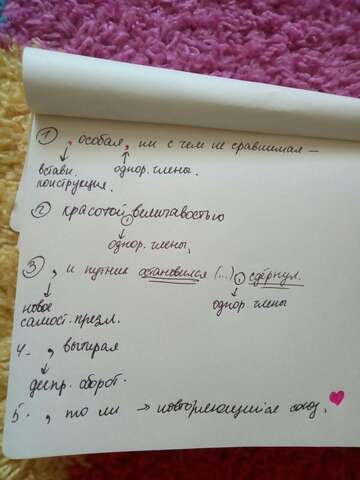 1) , особая, ни с чем не сравнимая –
встави. однор. члены.
конструкция.
2) красотой, величавостью
однор. члены,
3) , и путник остановился (...), сдёрнул.
новое однор. члены
самост. предл.
4. , вытирая
деепр. оборот.
5. , то ли → повторяющийся союз.